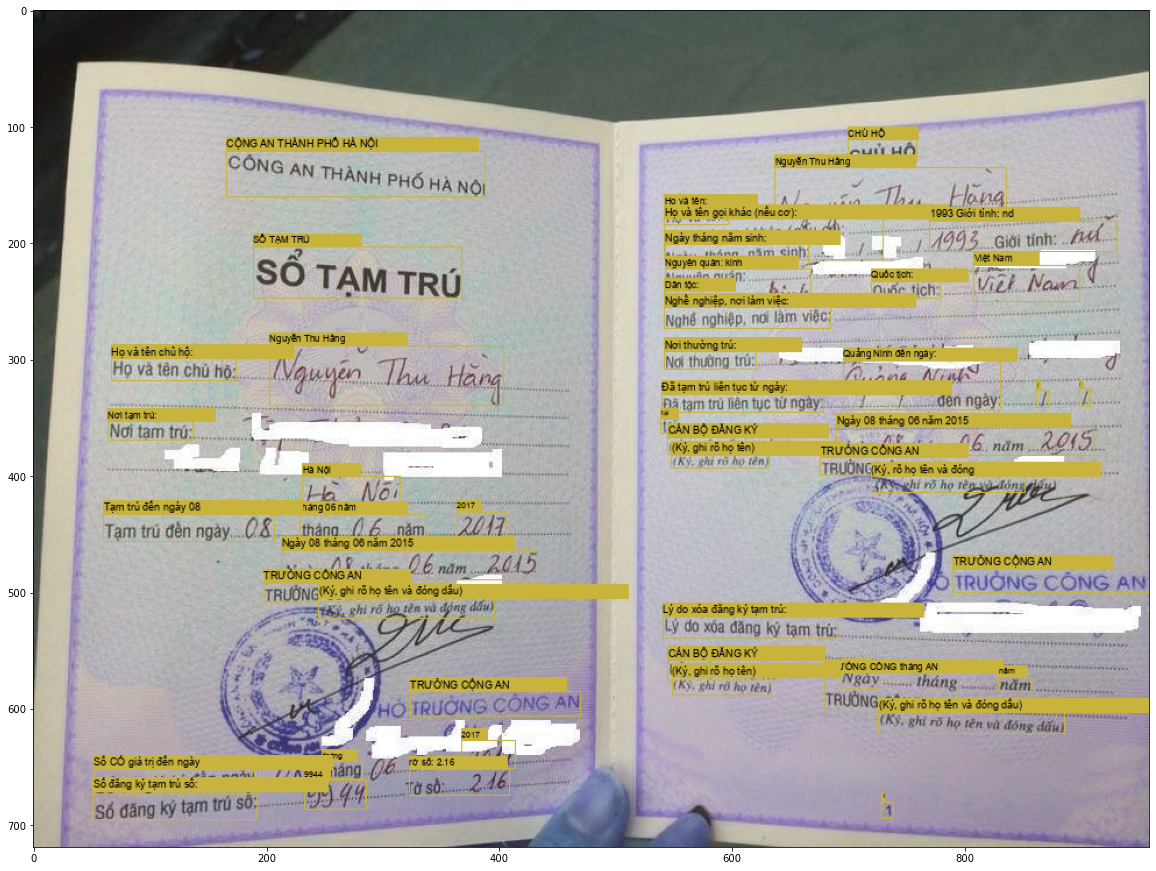 0
100
200
300
400
500
600
700
CỘNG AN THÀNH PHỐ HÀ NỘI
CÔNG AN THÀNH PHỐ HÀ NỘI
SỔ TẠM TRÚ
SỔ TẠM TRÚ
Nguyễn Thu Hằng
Họ và tên chủ hộ:
Họ và tên chủ hộ: Nguyễn Thu Hằng
Nơi tạm trú:
Nơi tạm trú:
Hà Nội
Hà Nội
Tạm trú đến ngày 08 háng 06 năm 2017
Tạm trú đến ngày 08 tháng 06 năm 2017
Ngày 08 tháng 06 năm 2015
08 tháng 06 năm 2015
TRƯỞNG CÔNG AN
TRƯỞNG (Ký, ghi rõ họ tên và đóng dấu)
(Ký, ghi rõ họ tên và đóng dấu)
TRƯỞNG CỘNG AN
HÓ TRƯỞNG CÔNG AN
2017
Sổ CÓ giá trị đến ngày rờ số: 2.16
tháng 06
9944
Số đăng ký tạm trú số:
Số đăng ký tạm trú số: 9944 Tờ số: 2.16
CHỦ HỘ
CHỦ HỘ
Nguyễn Thu Hằng
Nguyễn Thu Hằng
Họ và tên:
Họ và tên gọi khác (nếu cơ): 1993 Giới tính: nd
Ngày tháng năm sinh:
Ngày tháng năm sinh: / / 1993 Giới tính: nữ
Nguyên quán: kinh Việt Nam
Nguyên quán:
Quốc tịch:
Dân tộc: Quốc tịch: Việt Nam
Nghề nghiệp, nơi làm việc:
Nghề nghiệp, nơi làm việc:
Nơi thường trú: Quảng Ninh đến ngày:
Nơi thường trú:
Quảng Ninh
Đã tạm trú liên tục từ ngày:
Đã tạm trú liên tục từ ngày: / / đến ngày: / /
tại
Ngày 08 tháng 06 năm 2015
CÁN BỘ ĐĂNG KÝ
08 06 năm 2015
(Ký, ghi rõ họ tên) TRƯỞNG CÔNG AN
(Ký, ghi rõ họ tên) TRƯỞNG (Ký, rõ họ tên và đóng
(Ký, ghi rõ họ tên và đóng dấu)
TRƯỞNG CỘNG AN
HÓ TRƯỞNG CÔNG AN
Lý do xóa đăng ký tạm trú:
Lý do xóa đăng ký tạm trú:
CÁN BỘ ĐĂNG KÝ
(Ký, ghi rõ họ tên) ƯỞNG CÔNG tháng AN năm
(Ký, ghi rõ họ tên) Ngày ...... tháng ...... năm
TRƯỞNG (Ký, ghi rõ họ tên và đóng dấu)
(Ký, ghi rõ họ tên và đóng dấu)
1
0 200 400 600 800